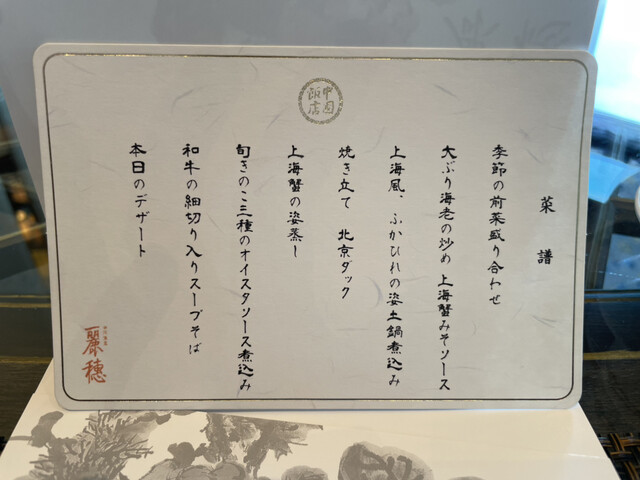 中国
飯店
菜譜
季節の前菜盛り合わせ
大ぶり海老の炒め 上海蟹みそソース
上海風、ふかひれの姿土鍋煮込み
焼き立て 北京ダック
上海蟹の姿蒸し
旬きのこ三種のオイスタソース煮込み
和牛の細切り入りスープそば
本日のデザート
麗穂